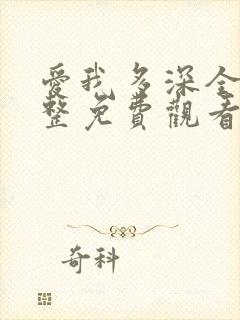 愛我多深全
整免費觀看
奇科